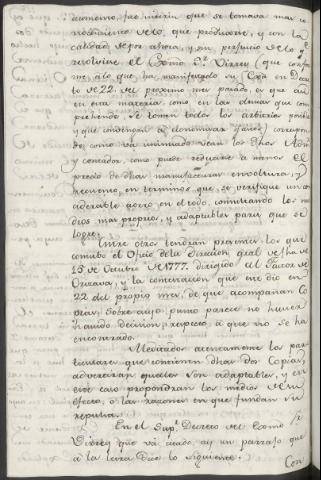 economo, fue inferir que se tomava mar co
nocimiento de lo, que produxere, y con la
calidad de por ahora, y sin perjuicio de lo q.e
resolviere el Exmo S.r Virrey (que confor
me, a lo que ha manifestado su Exa en Decre
to de 22. del proximo mes pasado, es que asi
en esta materia como en las demas que com
prehende, se tomen todos los arbitrios posibles
y que convengan a economizar gastos) correspon
de, como va intimado vean los dhos Adm.or
y contador, como puede reducirse a menos el
precio de dhas manufacturas embolturas, y
recuento, en terminos que, se verifique un con
siderable ahorro en el todo, meditando los me
dios mas proprios, y adaptables para que se
logre.
Entre otros tendran presente, los que
contubo el Oficio de la Direccion gral de fha de
15 de Octubre de 1777. dirigido al Factor de
Orizava, y la contextacion que este dio en
22 del propio mes, de que acompañan Co
pias, sobre cuyo punto parece no huver
havido decision, respecto, a que no se ha
encontrado.
Meditados atentamente los par
ticulares que contienen dhas dos Copias,
advertiran quales son adaptables, y en
este caso propondran los medios de su
efecto, o las razones en que fundan su
repulsa.
En el Sup.r Decreto del Exmo S.r
Virrey que va citado, ay un parrafo que
a la letra dice lo siguiente.
Con